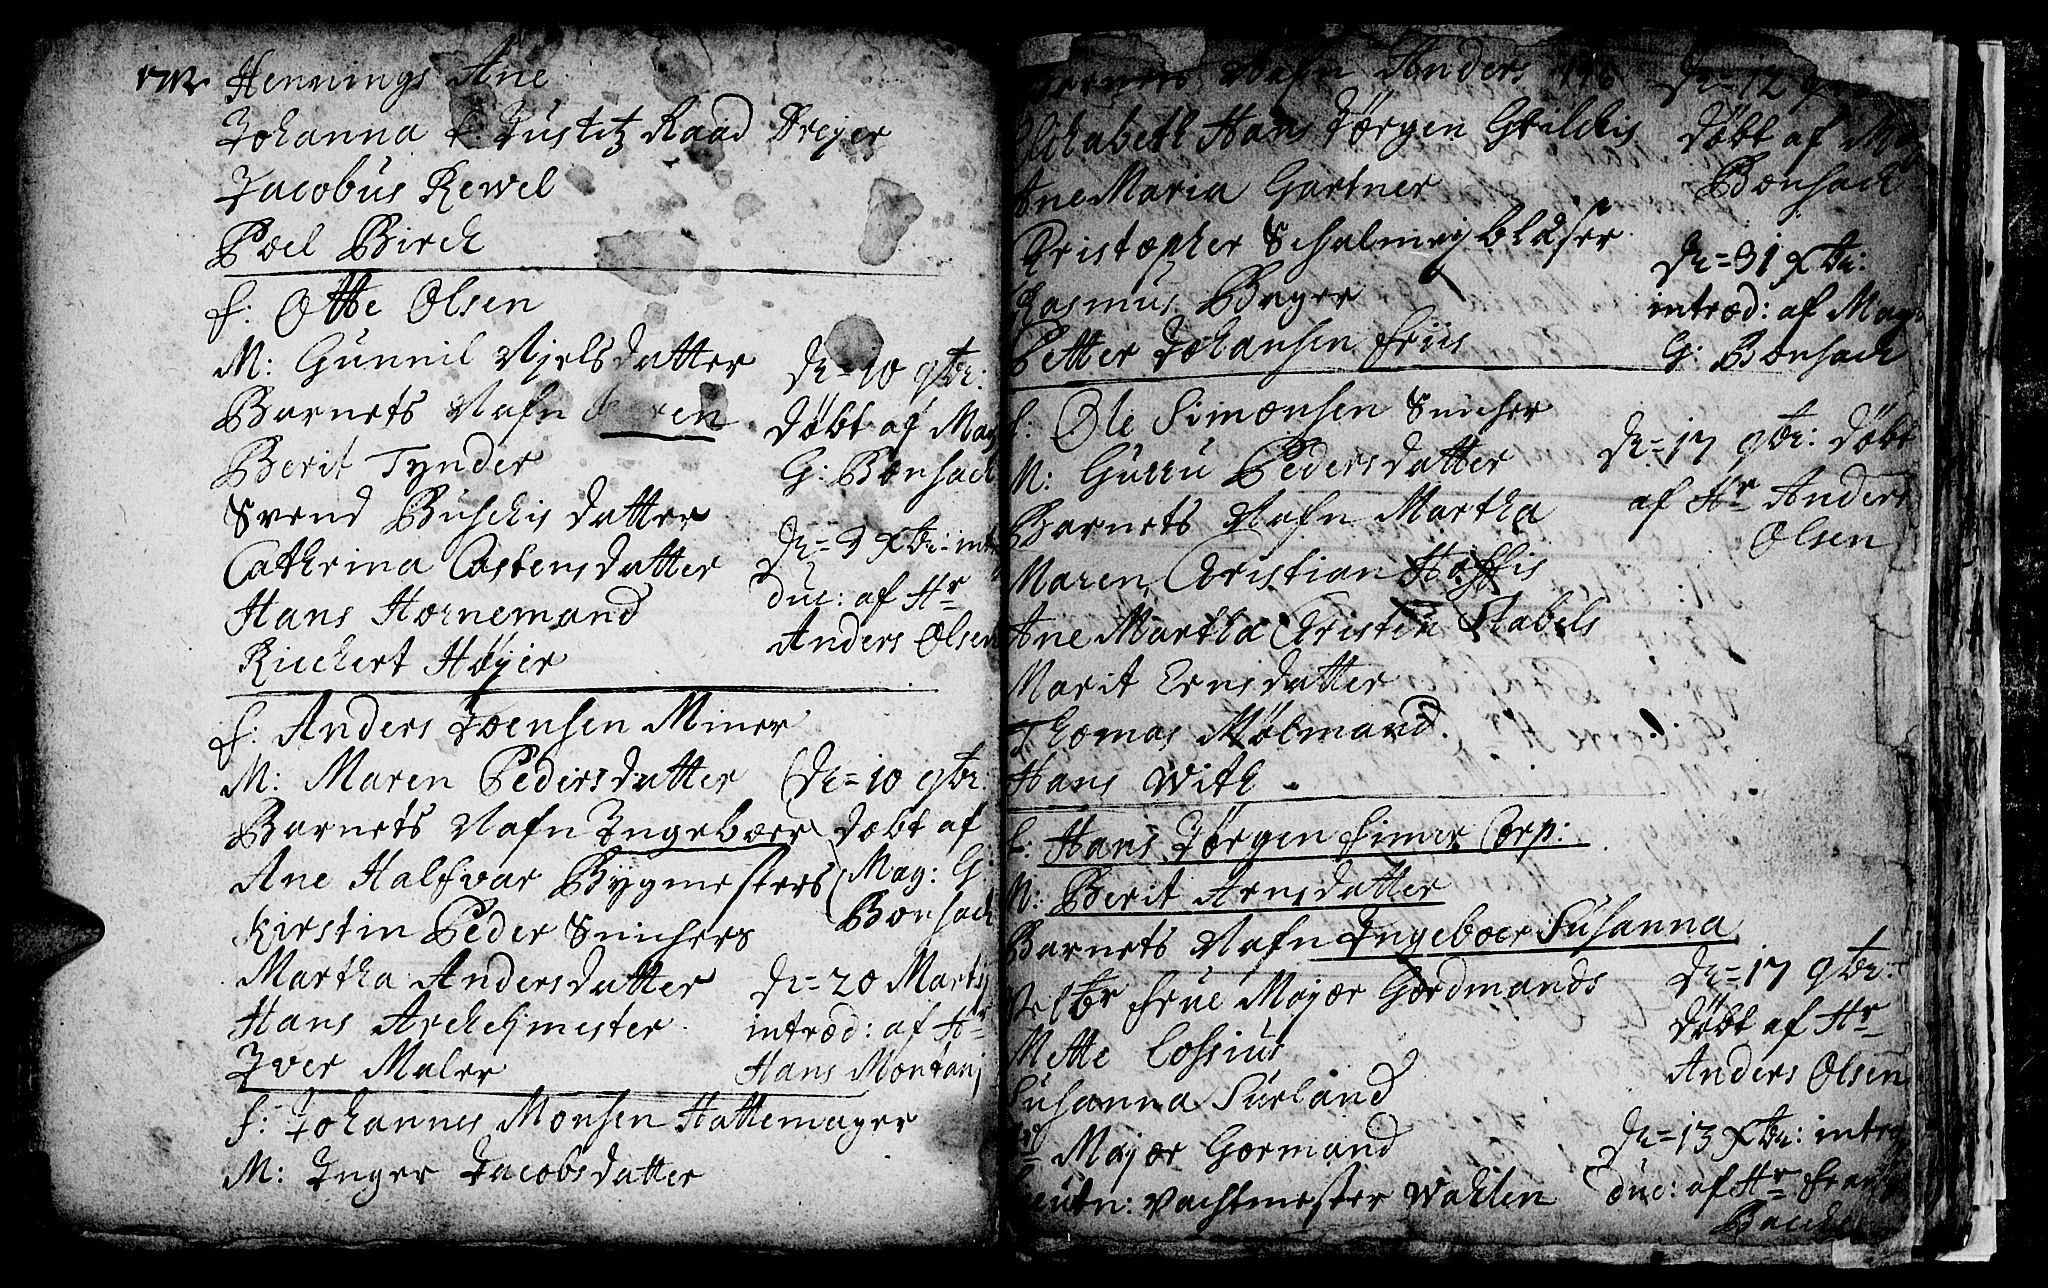 1712 Hennings Ane
Johanna k. Justitz Raad Dreyer
Jacobus Rewel
Poel Birch
F: Otte Olsen
M: Gunnil Njelsdatter
Barnets Nafn
Berit Tynder
Svend Buschis datter
Cathrina Castensdatter
Hans Hornemand
Riechert Høyer
D= 10 9br:
døbt af Mag
G: Bonsach
D= 9 Xbr: intro
duc: af Hr
Anders Olsen
F: Anders Joensen Miner
M: Maren Pedersdatter
Barnets Nafn Ingeboer
Ane Halfvar Bygmesters
Kirstin Peder Snichers
Martha Andersdatter
Hans Archelimester
Iver Maler
D= 10 9br:
døbt af
Mag: G:
Bonsach
D= 20 Martij
introd: af Hr
Hans Montanj
F: Johannes Monsen Hattemager
M: Inger Jacobsdatter
Barnets Nafn Anders 146
Elisabeth Hans Jørgen Gjilchis
Ane Maria Gartner
Cristopher Schalmeyblåser
Rasmus Bager
Petter Johansen Friis
D= 12
døbt af Mag
Bonsach
D= 31 Xbr:
introd: af Mag
G: Bonsach
F: Ole Simonsen Snicher
M: Gurru Pedersdatter
Barnets Nafn Martha
Maren Christian Hoffis
Ane Martha Cristen Stabels
Marit Ernsdatter
Thomas Mølmand.
Hans With
D= 17 9br: døbt
af Hr Anders
Olsen
F: Hans Jørgen Simer Corp:
M: Berit Arnsdatter
Barnets Nafn Ingeboer Susanna
Velbr Frue Major Gordmands
Mette Cossius
Susanna Surland
Hr Major Gormand
Leutn: Vachtmester Wahlen
D= 17 9br:
døbt af Hr
Anders Olsen
D= 13 Xbr: intro
duc: af Hr Frantz